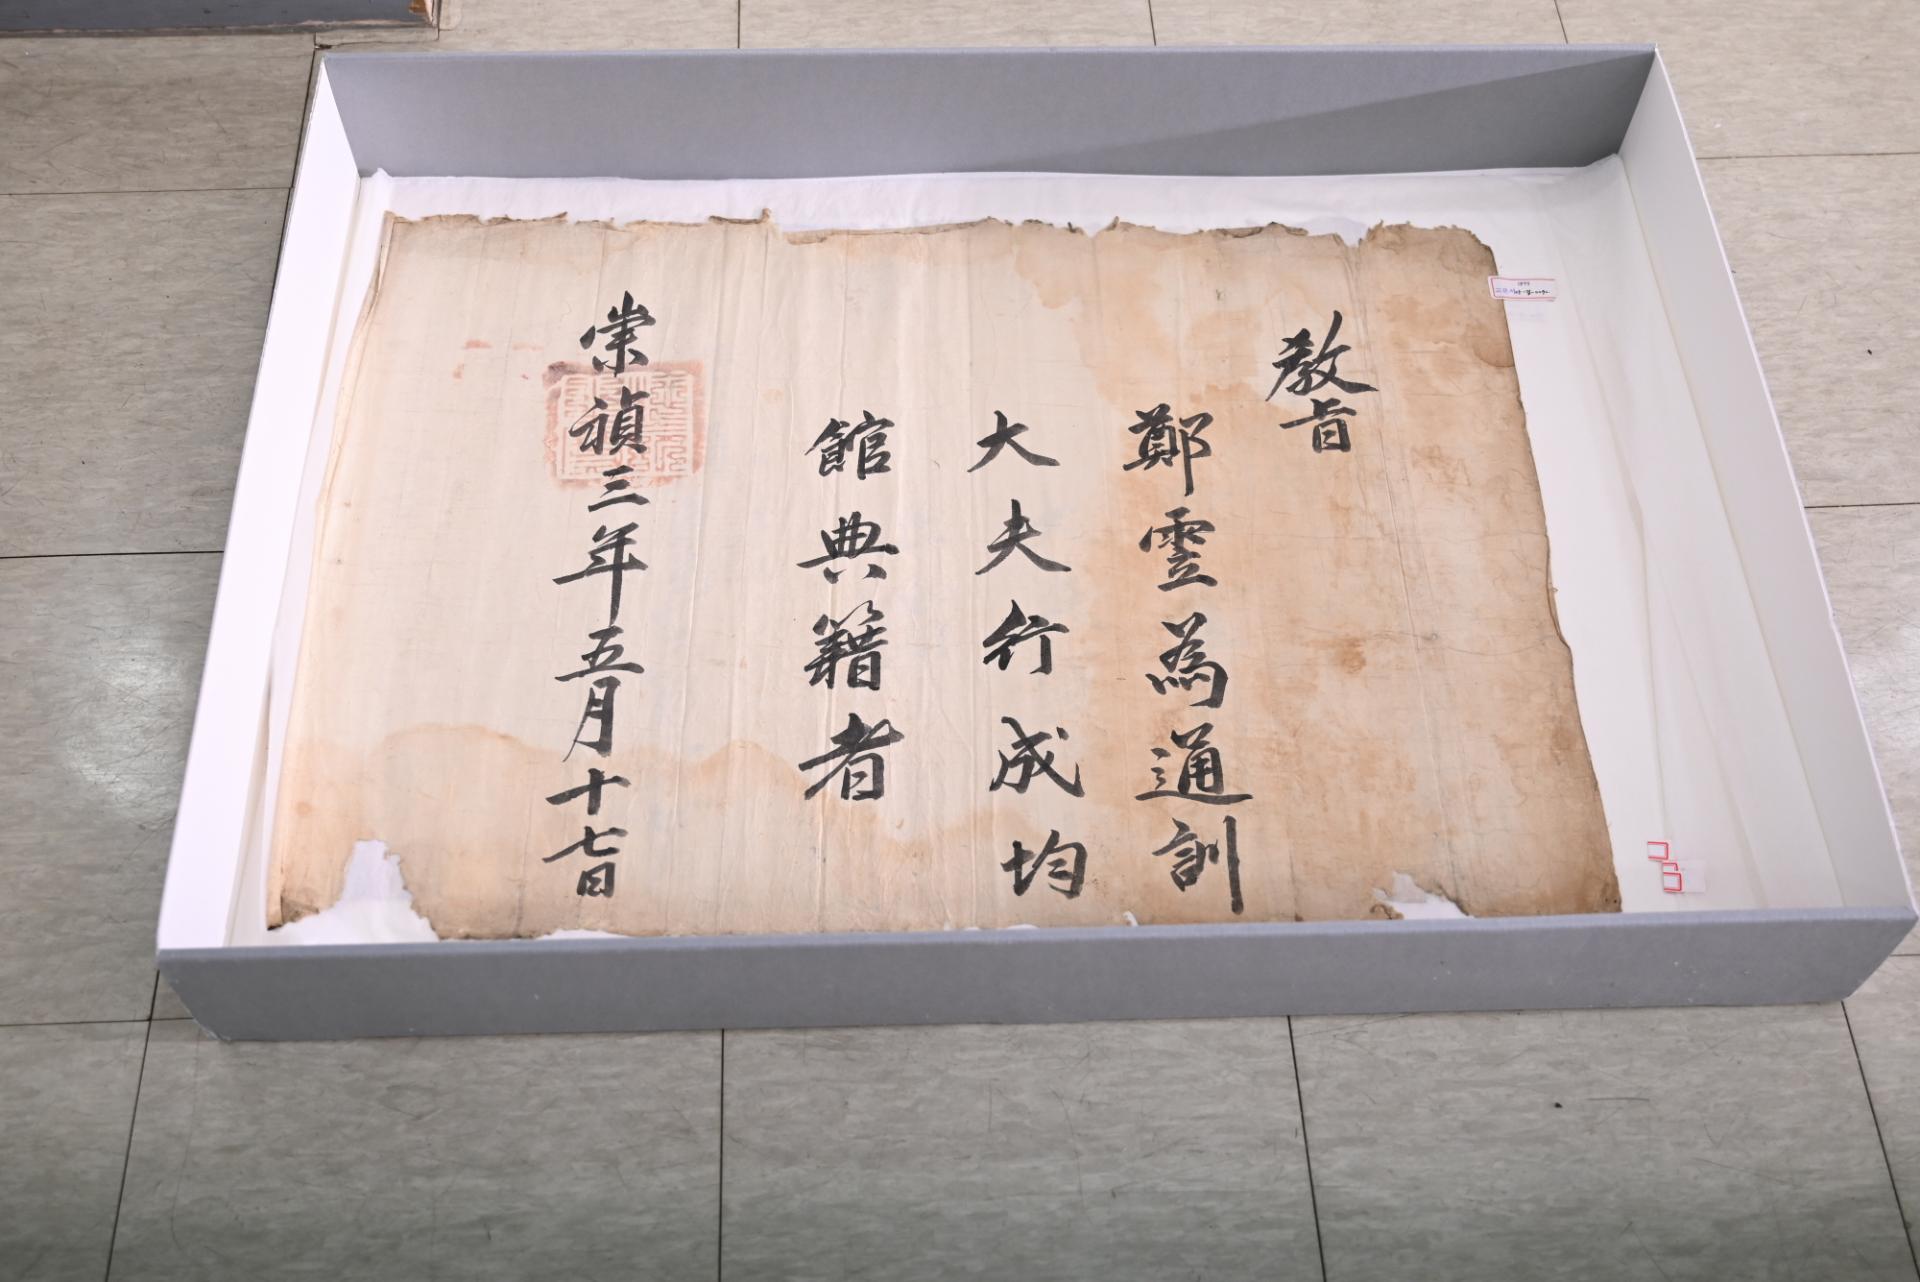 教旨
鄭雲為通訓
大夫行成均
館典籍者
崇禎三年五月十七日